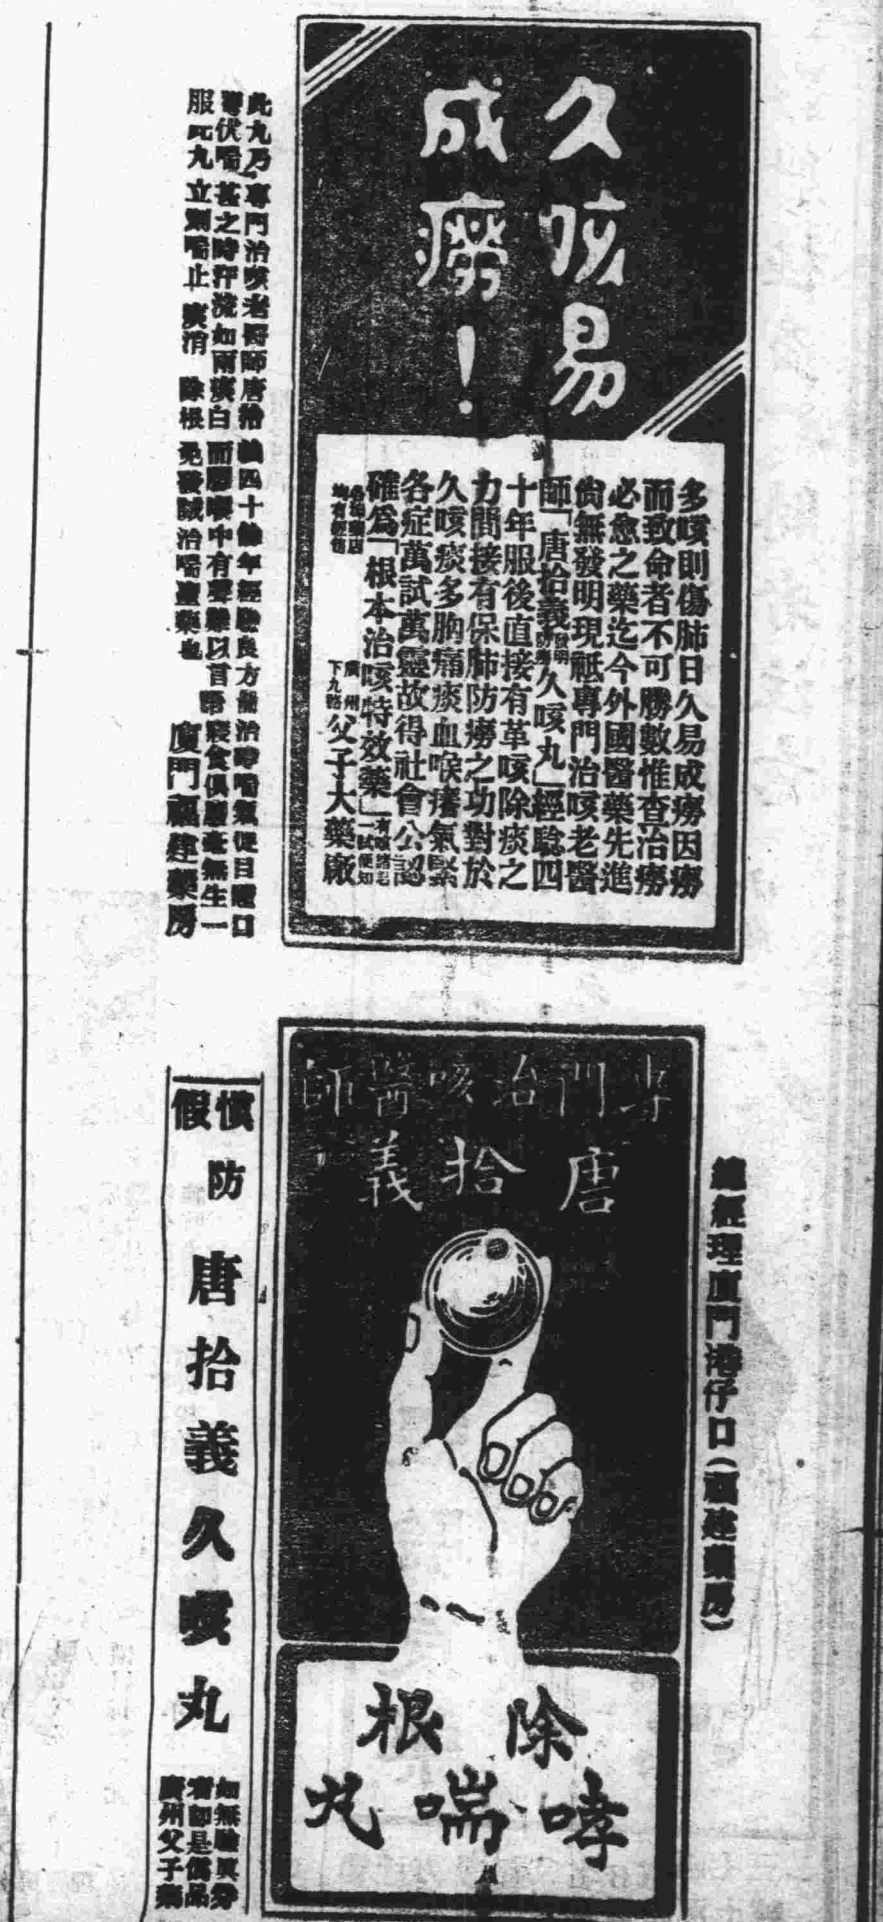 久咳易
成癆！
多咳則傷肺日久易成癆因癆
而致命者不可勝數惟查治癆
必愈之藥迄今外國醫藥先進
尙無發明現祗專門治咳老醫
師「唐拾義發明久咳丸」經驗四
十年服後直接有革咳除痰之
力間接有保肺防癆之功對於
久咳痰多胸痛痰血喉癢氣緊
各症萬試萬靈故得社會公認
確爲「根本治咳特效藥」
有咳諸君
一試便知
各埠藥店
均有經售
廣州
下九路
父子大藥廠
此丸乃專門治咳老醫師唐拾義四十餘年經驗良方能治哮喘氣促目瞪口
伏喘甚之時汗流如雨痰白而膠喉中有聲難以言語寢食俱廢毫無生
服此丸立刻喘止痰消除根免發誠治喘藥也
廈門福建藥房
總經理廈門港仔口（福建藥房）
專門治咳醫師
唐拾義
除根
哮喘丸
慎防假
唐拾義久咳丸
者卽是僞品
廣州父子